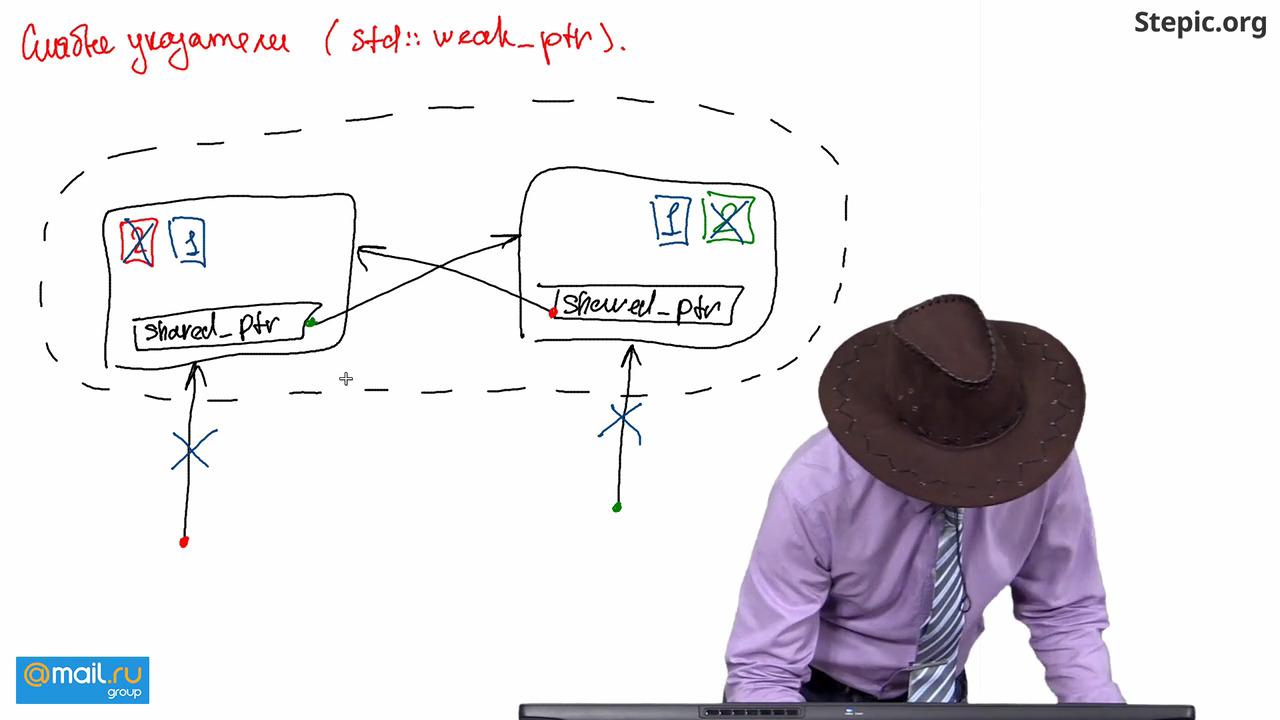 Слабые указатели (std::weak_ptr).
Stepic.org
2 1
1 2
shared_ptr
shared_ptr
@mail.ru
group